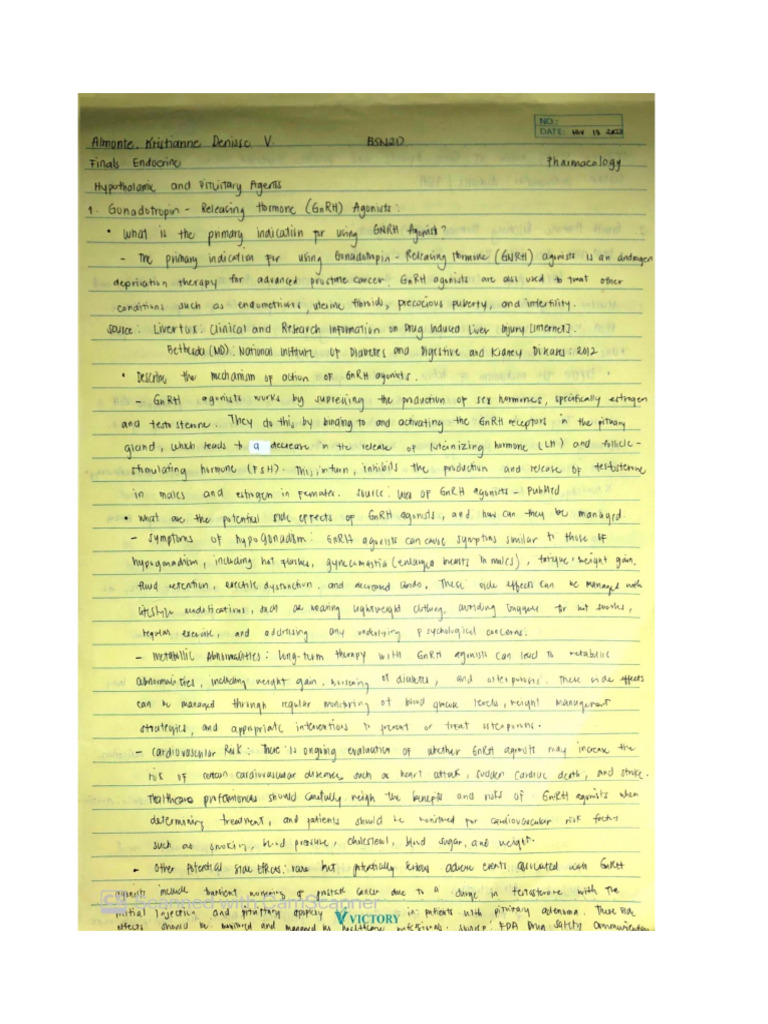 NO.:
DATE: NOV 13 2023
Almonte, Kristianne Denisse V. BSN2D
Finals Endocrine Pharmacology
Hypothalamic and Pituitary Agents
1. Gonadotropin - Releasing Hormone (GnRH) Agonists:
• What is the primary indication for using GNRH Agonist?
- The primary indication for using Gonadotropin - Releasing Hormone (GNRH) agonists is an androgen
deprivation therapy for advanced prostate cancer. GnRH agonists are also used to treat other
conditions such as endometriosis, uterine fibroids, precocious puberty, and infertility.
Source: Livertox: Clinical and Research Information on Drug Induced Liver Injury [Internet].
Bethesda (MD): National Institute of Diabetes and Digestive and Kidney Diseases: 2012
• Describe the mechanism of action of GnRH agonists.
- GnRH agonists works by supressing the production of sex hormones, specifically estrogen
and testosterone. They do this by binding to and activating the GnRH receptors in the pituitary
gland, which leads to a decrease in the release of luteinizing hormone (LH) and follicle-
stimulating hormone (FSH). This, in turn, inhibits the production and release of testosterone
in males and estrogen in females. Source: Use of GnRH agonists - PubMed
• What are the potential side effects of GnRH agonists, and how can they be managed.
- Symptoms of hypogonadism: GnRH agonists can cause symptoms similar to those of
hypogonadism, including hot flashes, gynecomastia (enlarged breasts in males), fatigue, weight gain,
fluid retention, erectile dysfunction, and decreased libido. These side effects can be managed with
lifestyle modifications, such as wearing lightweight clothing, avoiding triggers for hot flashes,
regular exercise, and addressing any underlying psychological concerns.
- Metabolic Abnormalities: long-term therapy with GnRH agonists can lead to metabolic
abnormalities, including weight gain, worsening of diabetes, and osteoporosis. These side effects
can be managed through regular monitoring of blood glucose levels, weight management
strategies, and appropriate interventions to prevent or treat osteoporosis.
- Cardiovascular Risk: There is ongoing evaluation of whether GnRH agonists may increase the
risk of certain cardiovascular diseases such as heart attack, sudden cardiac death, and stroke.
Healthcare professionals should carefully weigh the benefits and risks of GnRH agonists when
determining treatment, and patients should be monitored for cardiovascular risk factors
such as smoking, blood pressure, cholesterol, blood sugar, and weight.
- Other potential side effects: rare but potentially serious adverse events associated with GnRH
agonists include transient worsening of prostate cancer due to a surge in testosterone with the
initial injection and pituitary apoplexy in patients with pituitary adenoma. These side
effects should be monitored and managed by healthcare professionals. Source: FDA Drug Safety Communication
CS Scanned with CamScanner
VICTORY